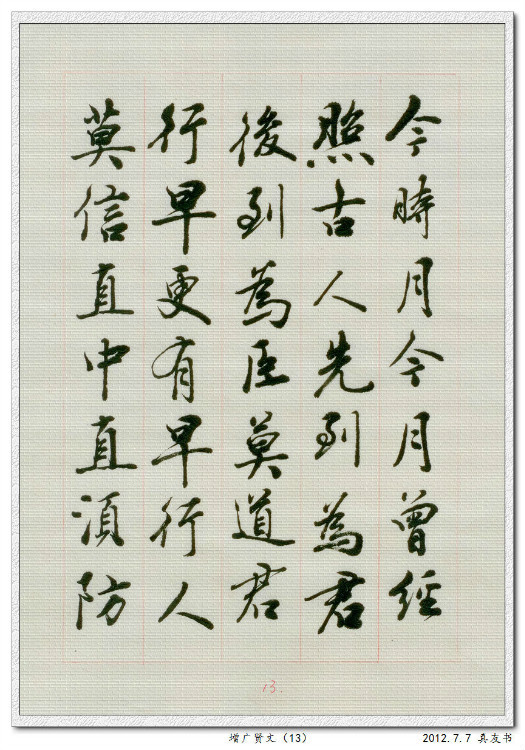 今時月今月曾經
照古人先到為君
後到為臣莫道君
行早更有早行人
莫信直中直須防
13.
增广贤文（13）
2012.7.7 真友书